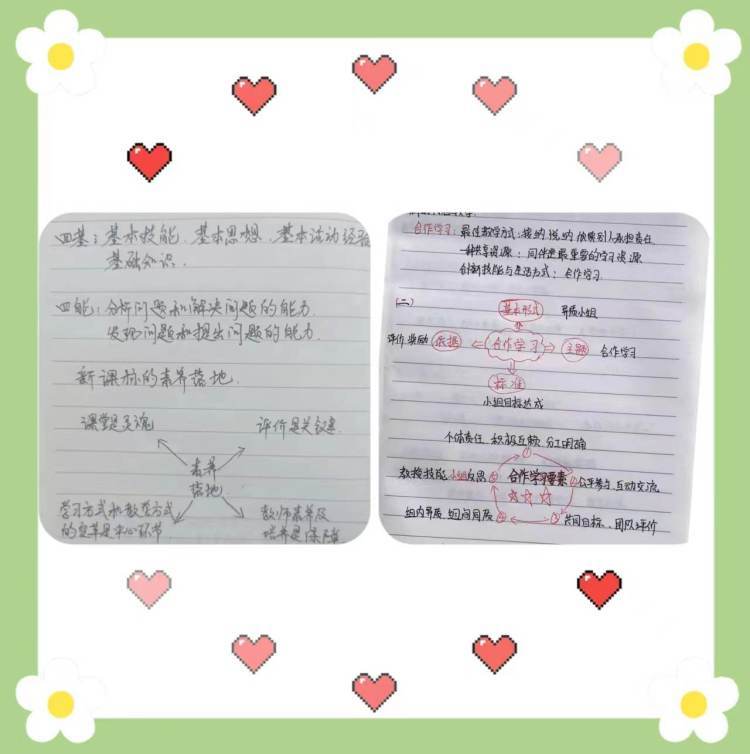 四基：基本技能、基本思想、基本活动经验
基础知识.
四能：分析问题和解决问题的能力
发现问题和提出问题的能力.
新课标的素养落地.
课堂是灵魂
评价是关键
素养
落地
学习方式和教学方式
的变革是中心环节
教师素养及
培养是保障
合作学习：最佳教学方式：接纳、悦纳、依赖别人、承担责任
一种共享资源：同伴是最重要的学习资源
创新技能与生活方式：合作学习.
(二)
基本形式 异质小组
评价、奖励 依据 合作学习 主题 合作学习
标准
小组目标达成
个体责任、积极互赖、分工明确
①
教授技能、小组反思 ⑤ 合作学习要素 ② 公平参与、互动交流
组内异质、组间同质 ④ ③ 共同目标、团队评价